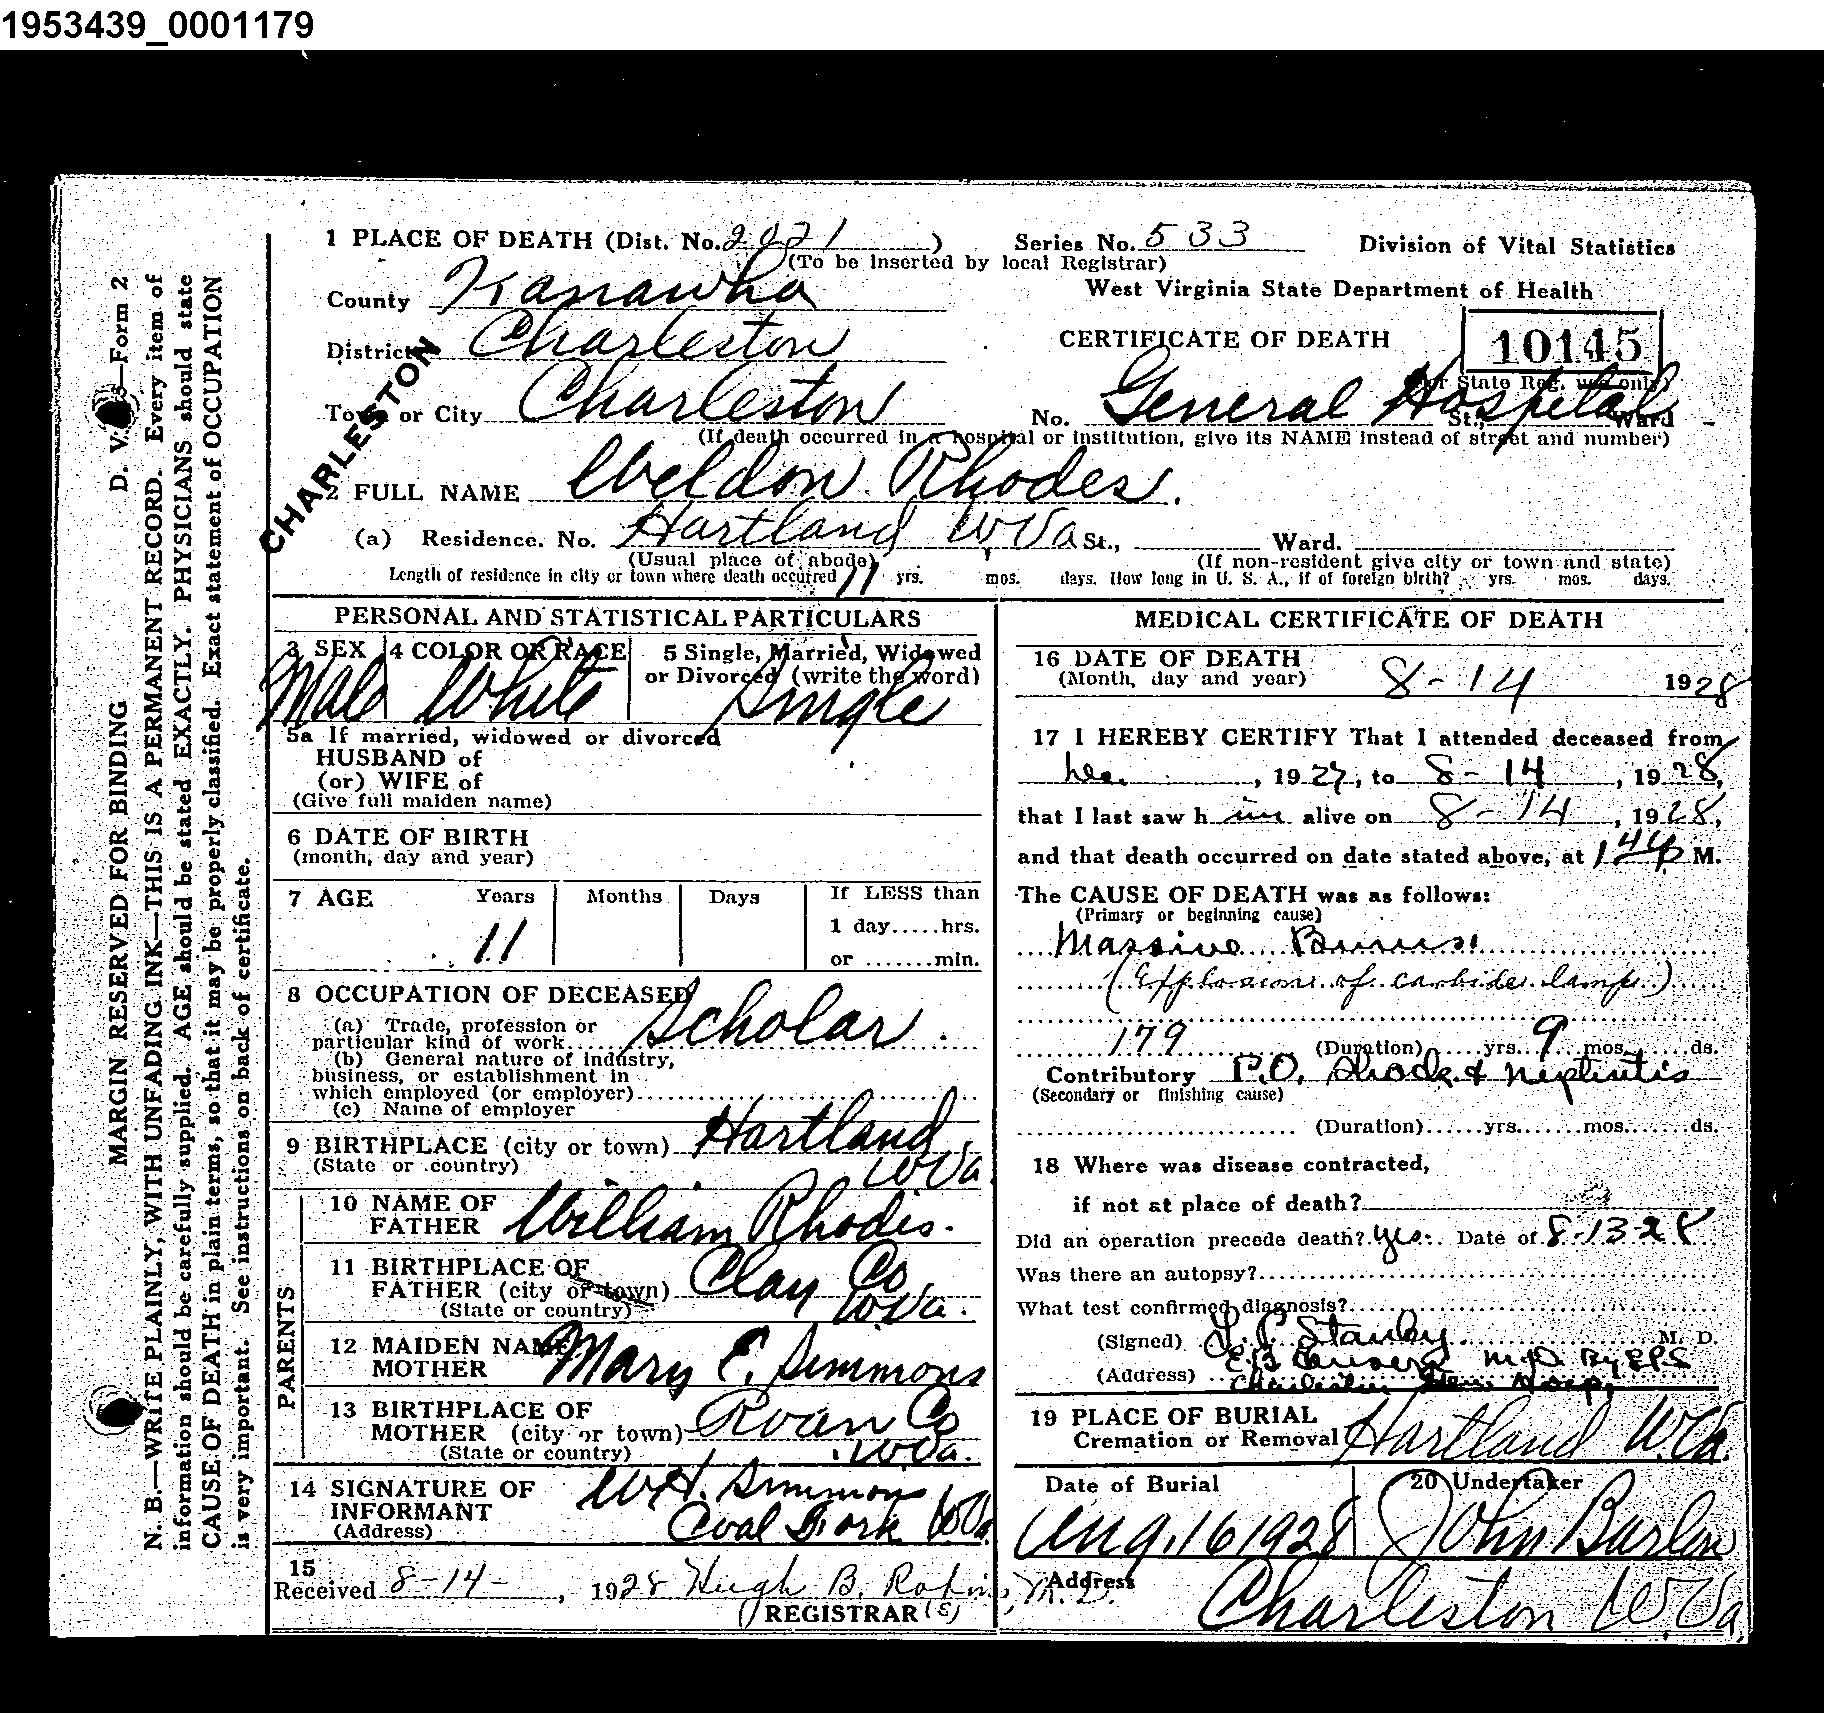 1953439_0001179
1 PLACE OF DEATH (Dist. No. 2021)
Series No. 533
Division of Vital Statistics
(To be inserted by local Registrar)
County Kanawha
West Virginia State Department of Health
District Charleston
CERTIFICATE OF DEATH
10145
(For State Reg. use only)
CHARLESTON
Town or City Charleston
No. General Hospital St., Ward
(If death occurred in a hospital or institution, give its NAME instead of street and number)
2 FULL NAME Weldon Rhodes.
(a) Residence. No. Hartland W.Va St., Ward.
(Usual place of abode)
(If non-resident give city or town and state)
Length of residence in city or town where death occurred 11 yrs. mos. days. How long in U. S. A., if of foreign birth? yrs. mos. days.
PERSONAL AND STATISTICAL PARTICULARS
3 SEX 4 COLOR OR RACE 5 Single, Married, Widowed
or Divorced (write the word)
Male White Single
5a If married, widowed or divorced
HUSBAND of
(or) WIFE of
(Give full maiden name)
6 DATE OF BIRTH
(month, day and year)
7 AGE Years Months Days If LESS than
1 day.....hrs.
11
or .......min.
8 OCCUPATION OF DECEASED
(a) Trade, profession or
particular kind of work Scholar.
(b) General nature of industry,
business, or establishment in
which employed (or employer)
(c) Name of employer
9 BIRTHPLACE (city or town) Hartland
(State or country) W Va.
PARENTS
10 NAME OF
FATHER William Rhodes.
11 BIRTHPLACE OF
FATHER (city or town) Clay Co
(State or country) W Va.
12 MAIDEN NAME
MOTHER Mary E. Simmons
13 BIRTHPLACE OF
MOTHER (city or town) Roan Co
(State or country) W.Va.
14 SIGNATURE OF
INFORMANT W H. Simmons
(Address) Coal Fork W Va
15
Received 8-14- , 1928 Hugh B. Robins, M.D.
REGISTRAR
MEDICAL CERTIFICATE OF DEATH
16 DATE OF DEATH
(Month, day and year) 8-14 1928
17 I HEREBY CERTIFY That I attended deceased from
, 1927, to 8-14, 1928,
that I last saw h im alive on 8-14, 1928,
and that death occurred on date stated above, at 1 44 p M.
The CAUSE OF DEATH was as follows:
(Primary or beginning cause)
Massive Burns
(Explosion of carbide lamp)
179 (Duration) yrs. 9 mos. ds.
Contributory P.O. Shock & nephritis
(Secondary or finishing cause)
(Duration) yrs. mos. ds.
18 Where was disease contracted,
if not at place of death?
Did an operation precede death? Yes. Date of 8-13-28
Was there an autopsy?
What test confirmed diagnosis?
(Signed) Stanley M. D.
M.D. By EPS
(Address) Charleston Gen Hosp.
19 PLACE OF BURIAL
Cremation or Removal Hartland W.Va.
Date of Burial
20 Undertaker
Aug. 16 1928 John Barlow
Address
Charleston W.Va.
D. V. S.—Form 2
MARGIN RESERVED FOR BINDING
N. B.—WRITE PLAINLY, WITH UNFADING INK—THIS IS A PERMANENT RECORD. Every item of
information should be carefully supplied. AGE should be stated EXACTLY. PHYSICIANS should state
CAUSE OF DEATH in plain terms, so that it may be properly classified. Exact statement of OCCUPATION
is very important. See instructions on back of certificate.